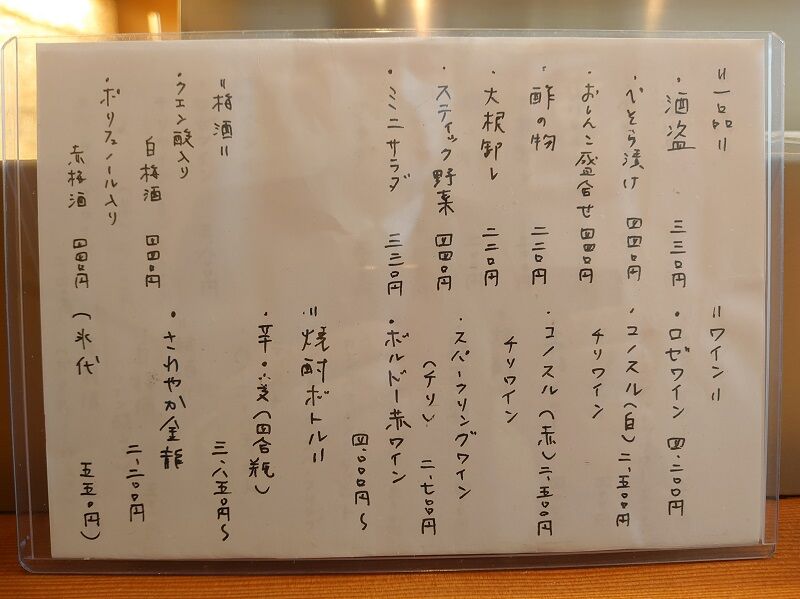 〃一品〃
・酒盗 三三〇円
・ぺそら漬け 四四〇円
・おしんこ盛合せ 四四〇円
・酢の物 二二〇円
・大根卸し 二二〇円
・スティック野菜 四四〇円
・ミニサラダ 三三〇円
〃梅酒〃
・クエン酸入り
白梅酒 四四〇円
・ポリフェノール入り
赤梅酒 四四〇円
〃ワイン〃
・ロゼワイン 四、二〇〇円
・コノスル(白) 二、五〇〇円
チリワイン
・コノスル(赤) 二、五〇〇円
チリワイン
・スパークリングワイン
(チリ) 二、七〇〇円
・ボルドー赤ワイン
四、〇〇〇円〜
〃焼酎ボトル〃
・芋・麦(四合瓶)
三、八五〇円〜
・さわやか金龍
二、二〇〇円
(氷代 五五〇円)